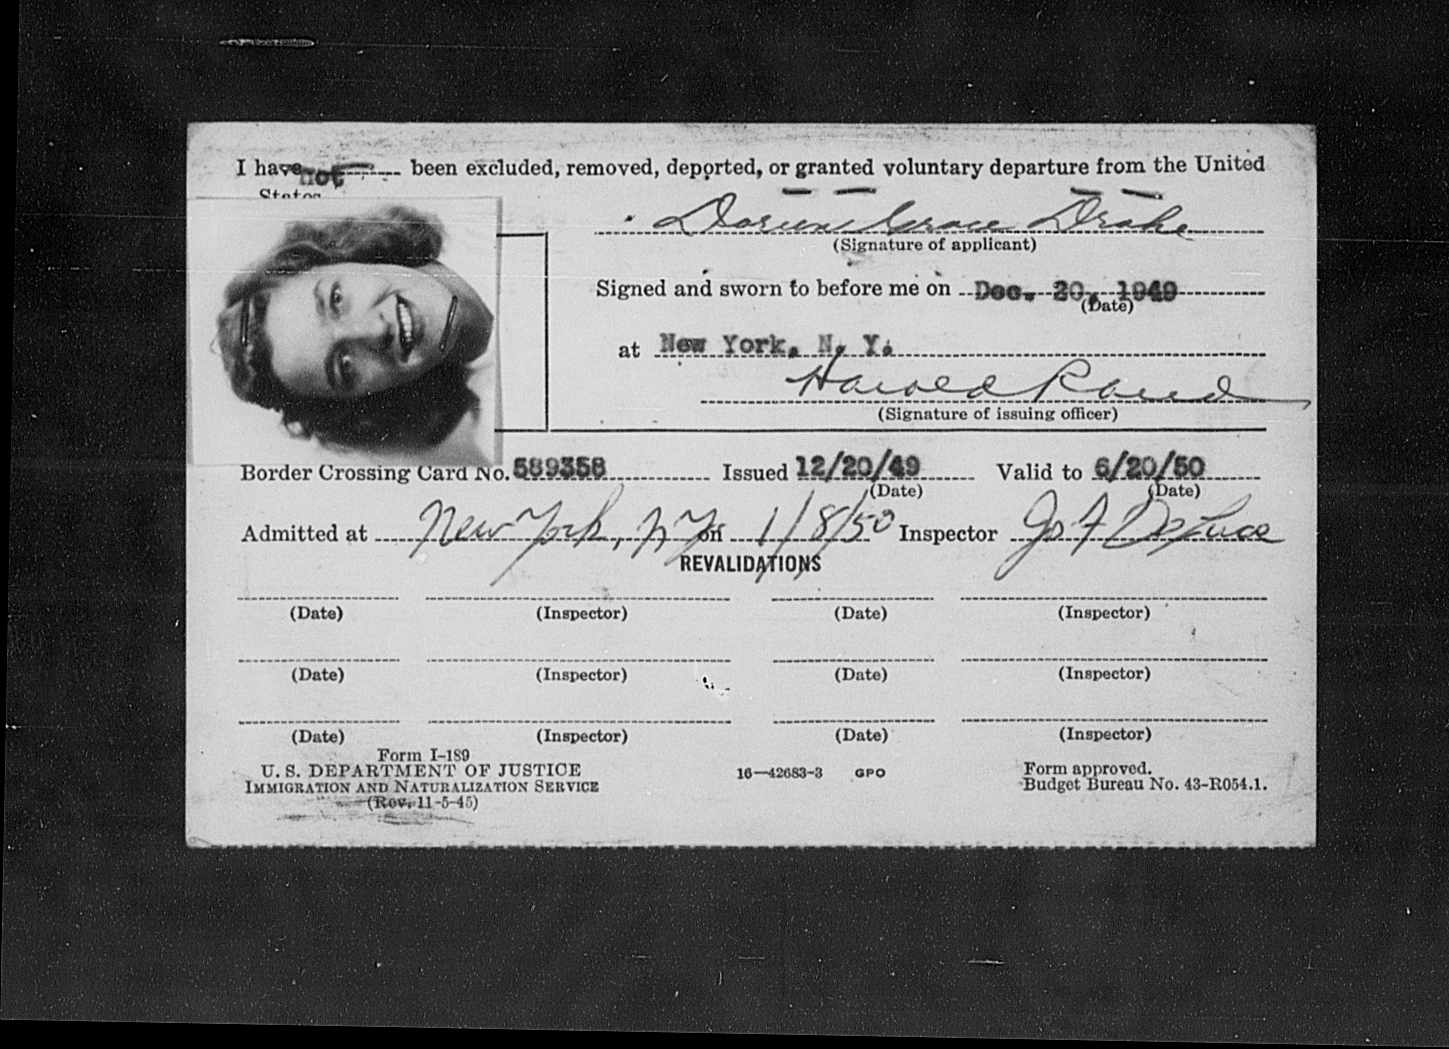 I have not been excluded, removed, deported, or granted voluntary departure from the United
States
Grace Drake
(Signature of applicant)
Signed and sworn to before me on Dec. 20, 1949
(Date)
at New York, N. Y.
Harold
(Signature of issuing officer)
Border Crossing Card No. 589358 Issued 12/20/49 Valid to 6/20/50
(Date) (Date)
Admitted at New York, NY on 1/8/50 Inspector Jos F De Luca
REVALIDATIONS
(Date) (Inspector) (Date) (Inspector)
(Date) (Inspector) (Date) (Inspector)
(Date) (Inspector) (Date) (Inspector)
Form I-189
U. S. DEPARTMENT OF JUSTICE
IMMIGRATION AND NATURALIZATION SERVICE
(Rev. 11-5-45)
16—42683-3 GPO
Form approved.
Budget Bureau No. 43-R054.1.